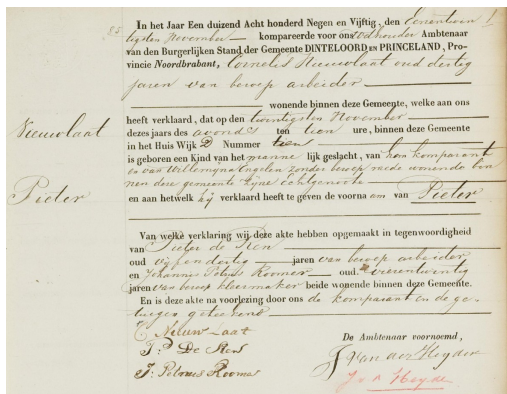 85
In het Jaar Een duizend Acht honderd Negen en Vijftig, den Eenentwin
tigsten November kompareerde voor ons Wethouder Ambtenaar
van den Burgerlijken Stand der Gemeente DINTELOORD EN PRINCELAND, Pro-
vincie Noordbrabant, Cornelis Nieuwlaat oud dertig
jaren van beroep arbeider
wonende binnen deze Gemeente, welke aan ons
heeft verklaard, dat op den twintigsten November
dezes jaars des avonds ten tien ure, binnen deze Gemeente
Nieuwlaat
in het Huis Wijk D Nummer tien
is geboren een Kind van het manne lijk geslacht, van hem komparant
en van Willemyna Engelen zonder beroep mede wonende bin
nen deze gemeente zyne echtgenoote
Pieter
en aan hetwelk hij verklaard heeft te geven de voorna am van Pieter
Van welke verklaring wij deze akte hebben opgemaakt in tegenwoordigheid
van Pieter de Ren
oud vijfendertig jaren van beroep arbeider
en Johannes Petrus Roomer oud vierentwintig
jaren van beroep kleermaker beide wonende binnen deze Gemeente.
En is deze akte na voorlezing door ons de komparant en de ge-
tuigen geteekend
C Nieuw Laat
P: De Ren
J: Petrus Roomer
De Ambtenaar voornoemd,
J van der Heyden
J v d Heyde